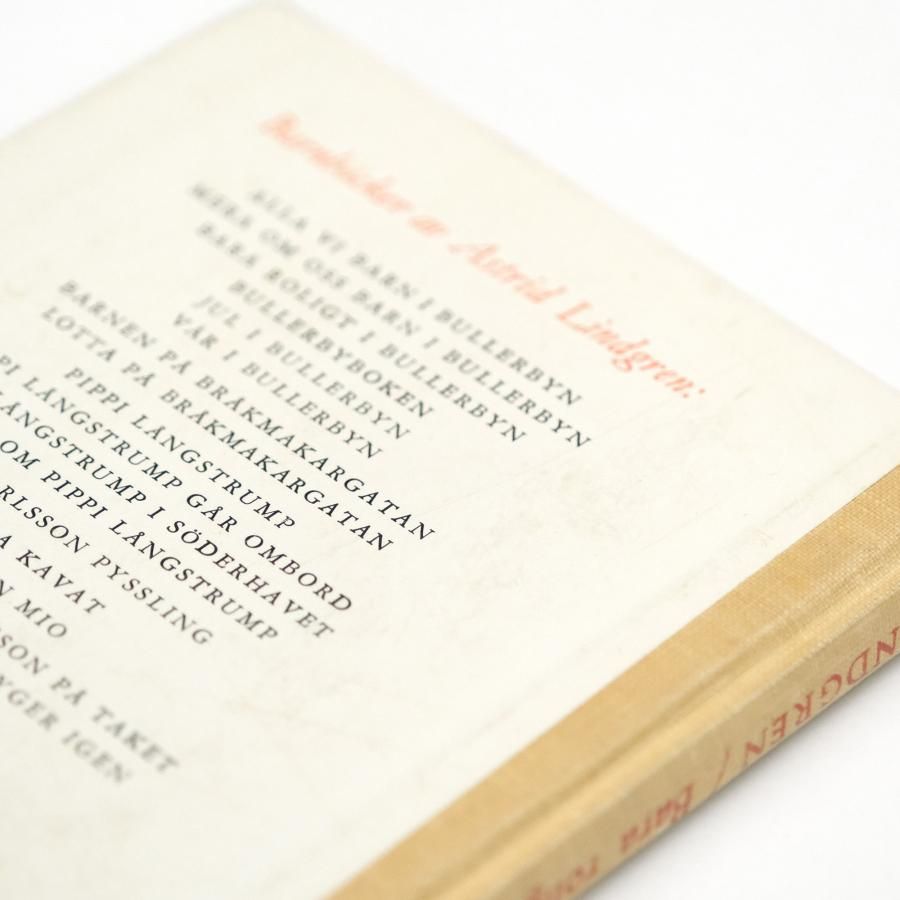 Barnböcker av Astrid Lindgren:
ALLA VI BARN I BULLERBYN
MERA OM OSS BARN I BULLERBYN
BARA ROLIGT I BULLERBYN
BULLERBYBOKEN
JUL I BULLERBYN
VÅR I BULLERBYN
BARNEN PÅ BRÅKMAKARGATAN
LOTTA PÅ BRÅKMAKARGATAN
PIPPI LÅNGSTRUMP
PI LÅNGSTRUMP GÅR OMBORD
LÅNGSTRUMP I SÖDERHAVET
OM PIPPI LÅNGSTRUMP
RLSSON PYSSLING
A KAVAT
N MIO
SON PÅ TAKET
YGER IGEN
NDGREN / Bara rolig